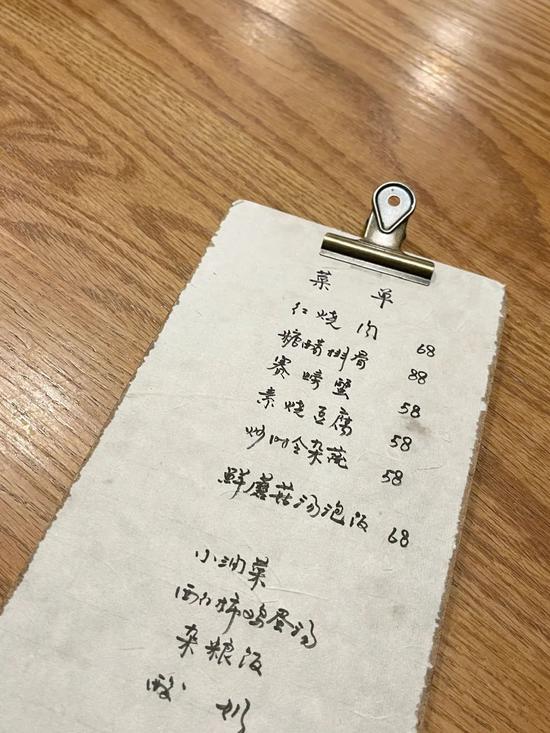 菜 单
红烧肉 68
糖醋排骨 88
赛螃蟹 58
素烧豆腐 58
炒时令杂蔬 58
鲜蘑菇汤泡饭 68
小油菜
西红柿鸡蛋汤
杂粮饭
酸 奶